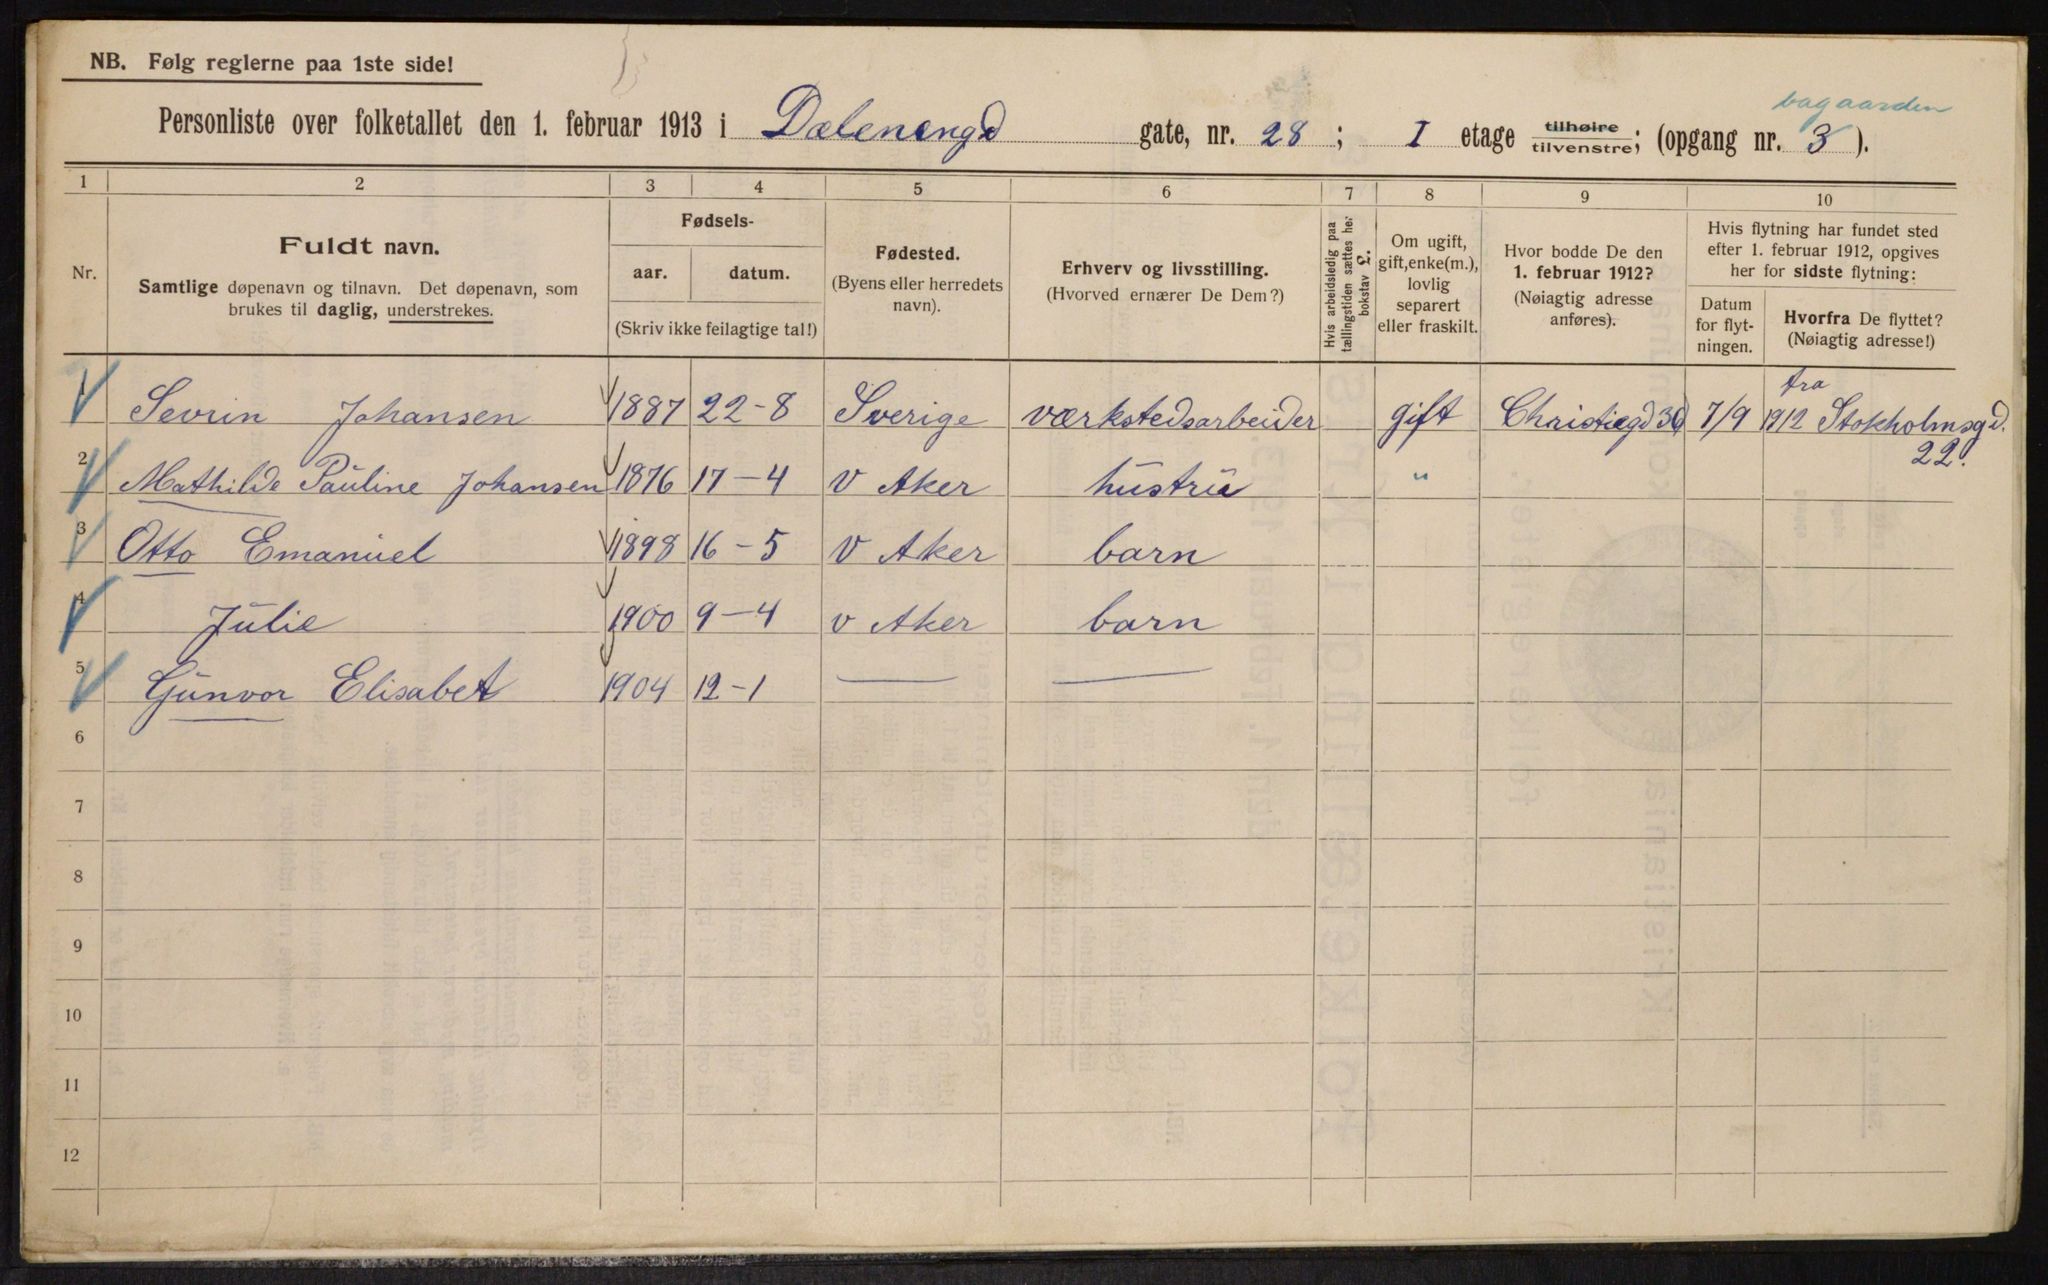 NB. Følg reglerne paa 1ste side!
bagaarden
Personliste over folketallet den 1. februar 1913 i Dælenengd gate, nr. 28 ; I etage tilhøire tilvenstre; (opgang nr. 3 ).
1 2 3 4 5 6 7 8 9 10
Nr.
Fuldt navn.
Samtlige døpenavn og tilnavn. Det døpenavn, som
brukes til daglig, understrekes.
Fødsels-
aar. datum.
(Skriv ikke feilagtige tal!)
Fødested.
(Byens eller herredets
navn).
Erhverv og livsstilling.
(Hvorved ernærer De Dem?)
Hvis arbeidsledig paa
tællingstiden sættes her
bokstav L.
Om ugift,
gift, enke(m.),
lovlig
separert
eller fraskilt.
Hvor bodde De den
1. februar 1912?
(Nøiagtig adresse
anføres).
Hvis flytning har fundet sted
efter 1. februar 1912, opgives
her for sidste flytning:
Datum
for flyt-
ningen.
Hvorfra De flyttet?
(Nøiagtig adresse!)
1 Sevrin Johansen 1887 22-8 Sverige værkstedsarbeider gift 7/9 1912 fra Stokholmsgd. 22.
2 Mathilde Pauline Johansen 1876 17-4 V Aker hustru "
3 Otto Emanuel 1898 16-5 V Aker barn
4 Julie 1900 9-4 v Aker barn
5 Gunvor Elisabet 1904 12-1 — —
6
7
8
9
10
11
12